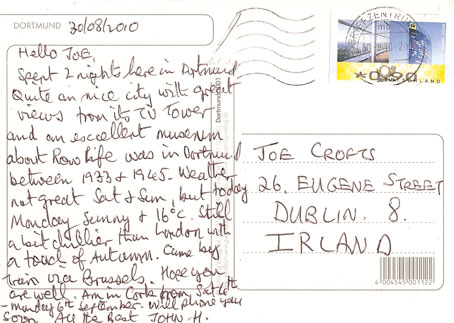 DORTMUND
30/08/2010
Hello JOE
Spent 2 nights here in Dortmund
Quite an nice city with great
views from its TV Tower
and an escellent museum
about How life was in Dortmund
between 1933 & 1945. Weather
not great Sat & Sun, but today
Monday sunny & 16°C. Still
a bit chillier than London with
a touch of Autumn. Came by
train via Brussels. Hope you
are well. Am in Cork from Sat 4th
- monday 6th September. Will phone you
soon All the Best JOHN-H.
JOE CROFTS
26. EUGENE STREET
DUBLIN. 8.
IRLAND
*0090
4 004545 001122